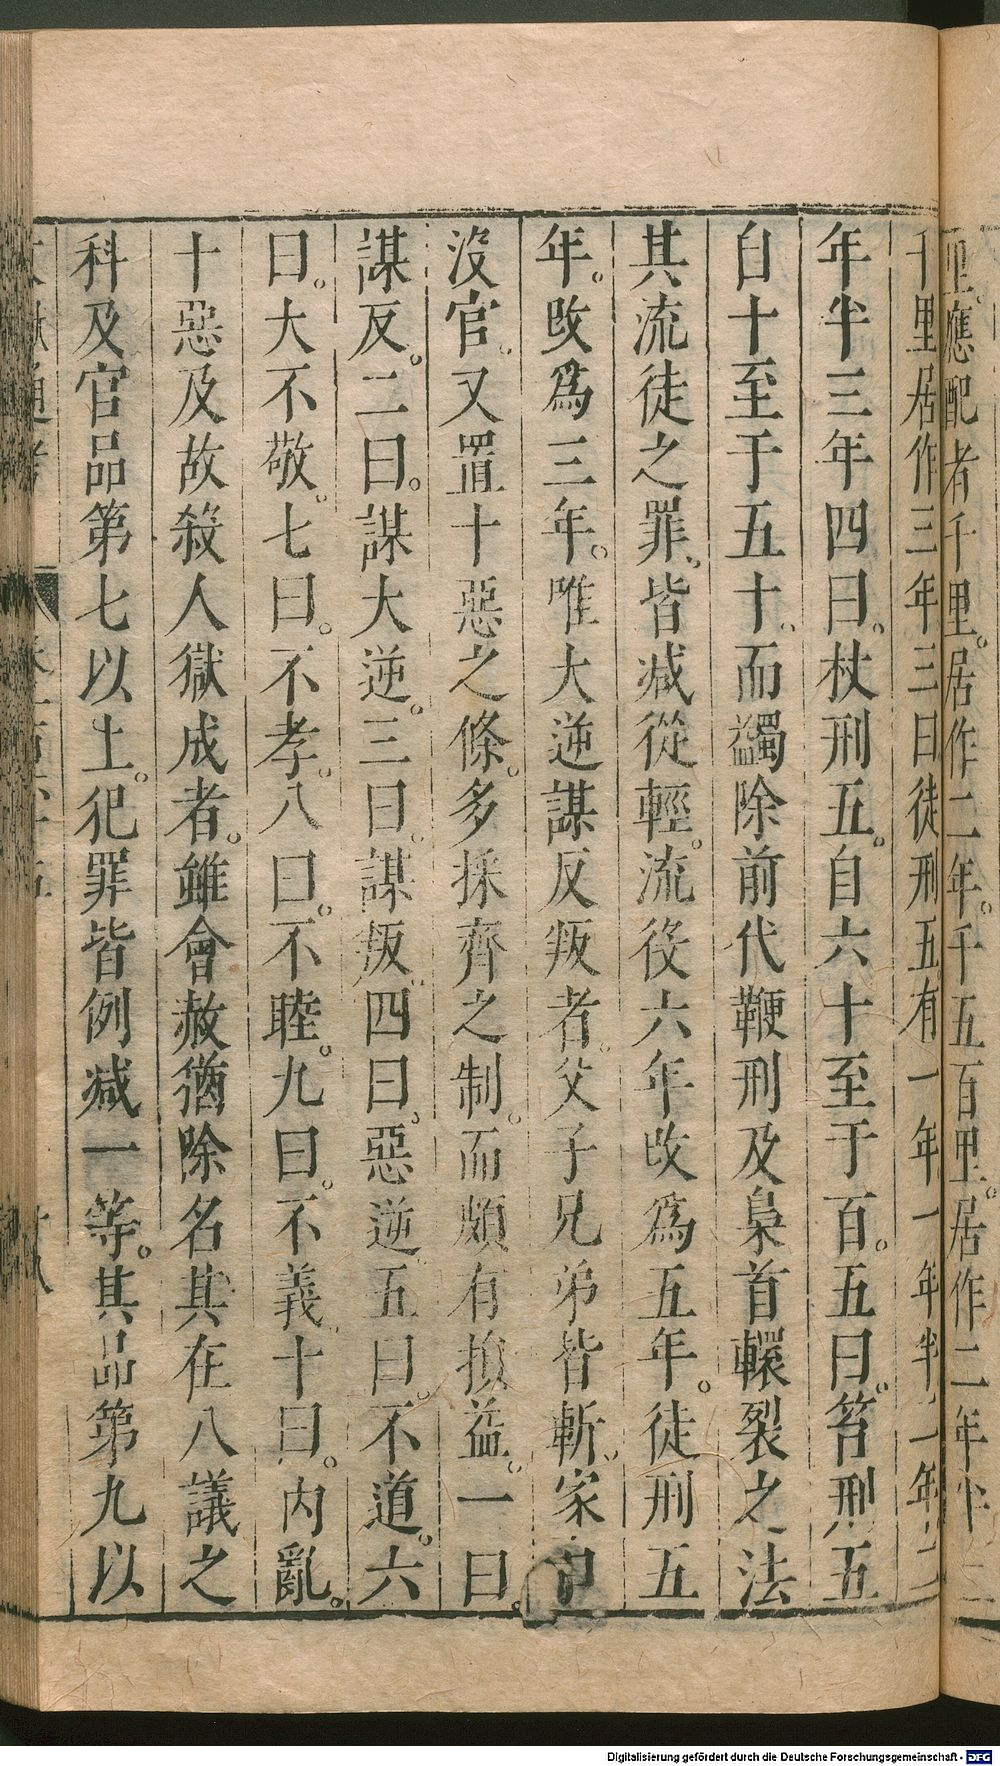 里。應配者千里。居作二年。千五百里。居作二年半
千里居作三年三曰徒刑五有一年一年半二年二
年半三年四曰。杖刑五。自六十至于百。五曰。笞刑五
自十至于五十。而蠲除前代鞭刑及梟首轘裂之法
其流徒之罪。皆減從輕。流役六年改爲五年。徒刑五
年。改爲三年。唯大逆謀反叛者。父子兄弟皆斬。家口
沒官。又置十惡之條。多採齊之制。而頗有損益。一曰。
謀反。二曰。謀大逆。三曰。謀叛。四曰。惡逆。五曰。不道。六
曰。大不敬。七曰。不孝。八曰。不睦。九曰。不義。十曰。內亂。
十惡及故殺人獄成者。雖會赦猶除名其在八議之
科及官品第七以上。犯罪皆例減一等。其品第九以
Digitalisierung gefördert durch die Deutsche Forschungsgemeinschaft - DFG